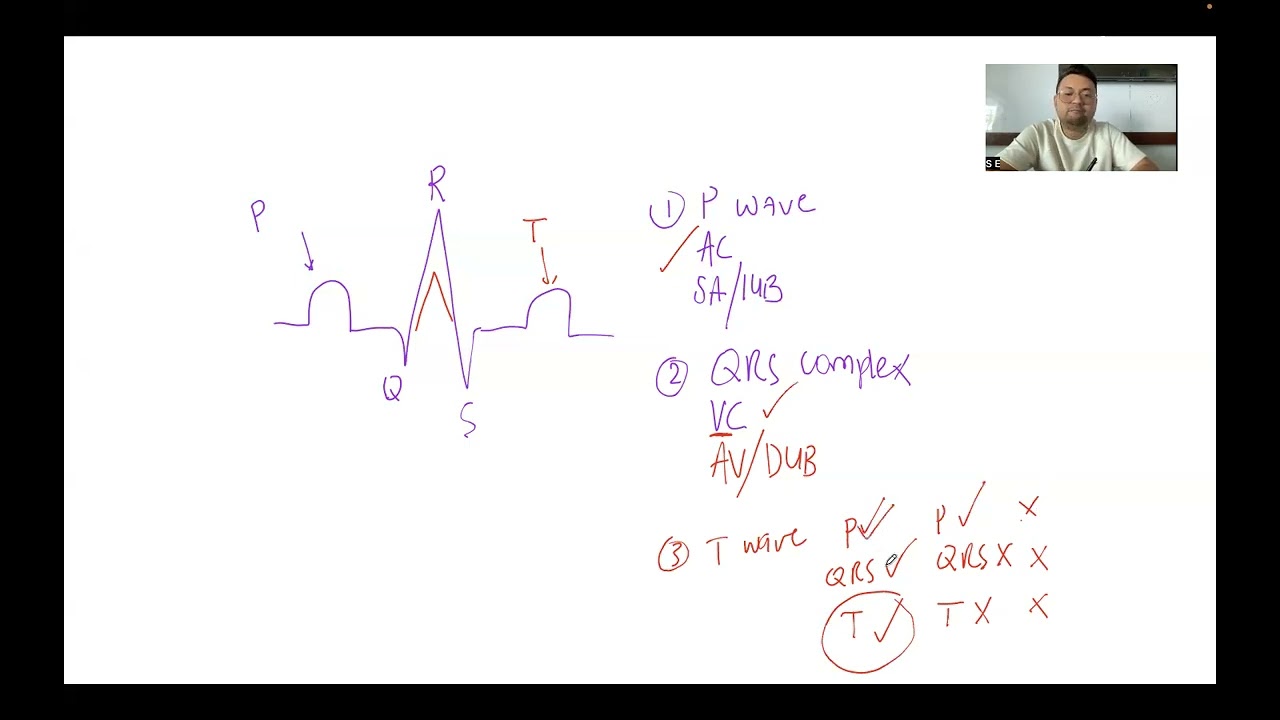 P
R
T
Q
S
① P wave
✓ AC
SA/IUB
② QRS complex
VC ✓
AV/DUB
③ T wave
P ✓ P ✓ X
QRS ✓ QRS X X
T ✓ T X X
S E